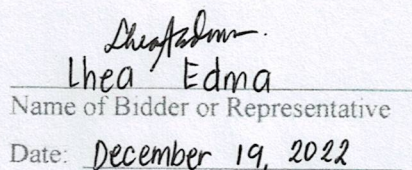 Lhea Edma
Name of Bidder or Representative
Date: December 19, 2022